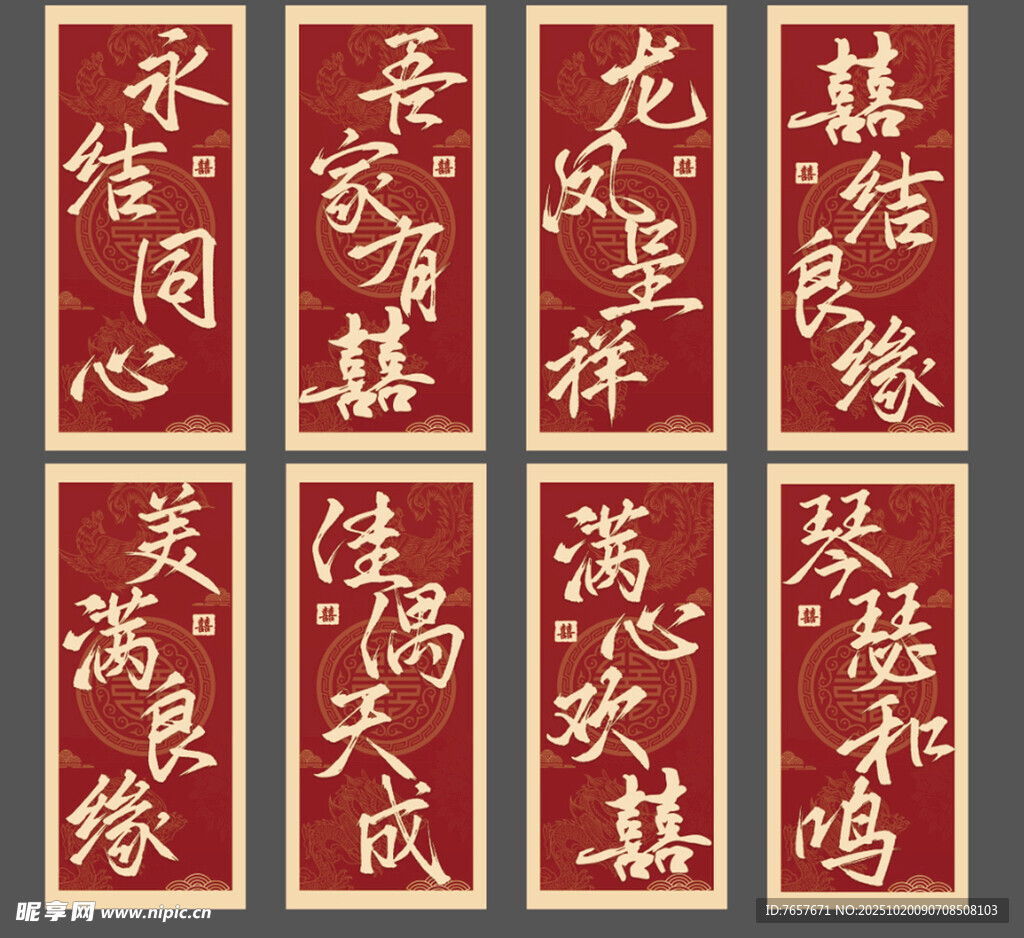 永结同心
囍
吾家有囍
囍
龙凤呈祥
囍
囍结良缘
囍
美满良缘
囍
佳偶天成
囍
满心欢囍
囍
琴瑟和鸣
囍
昵享网 www.nipic.cn
ID:7657671 NO:20251020090708508103